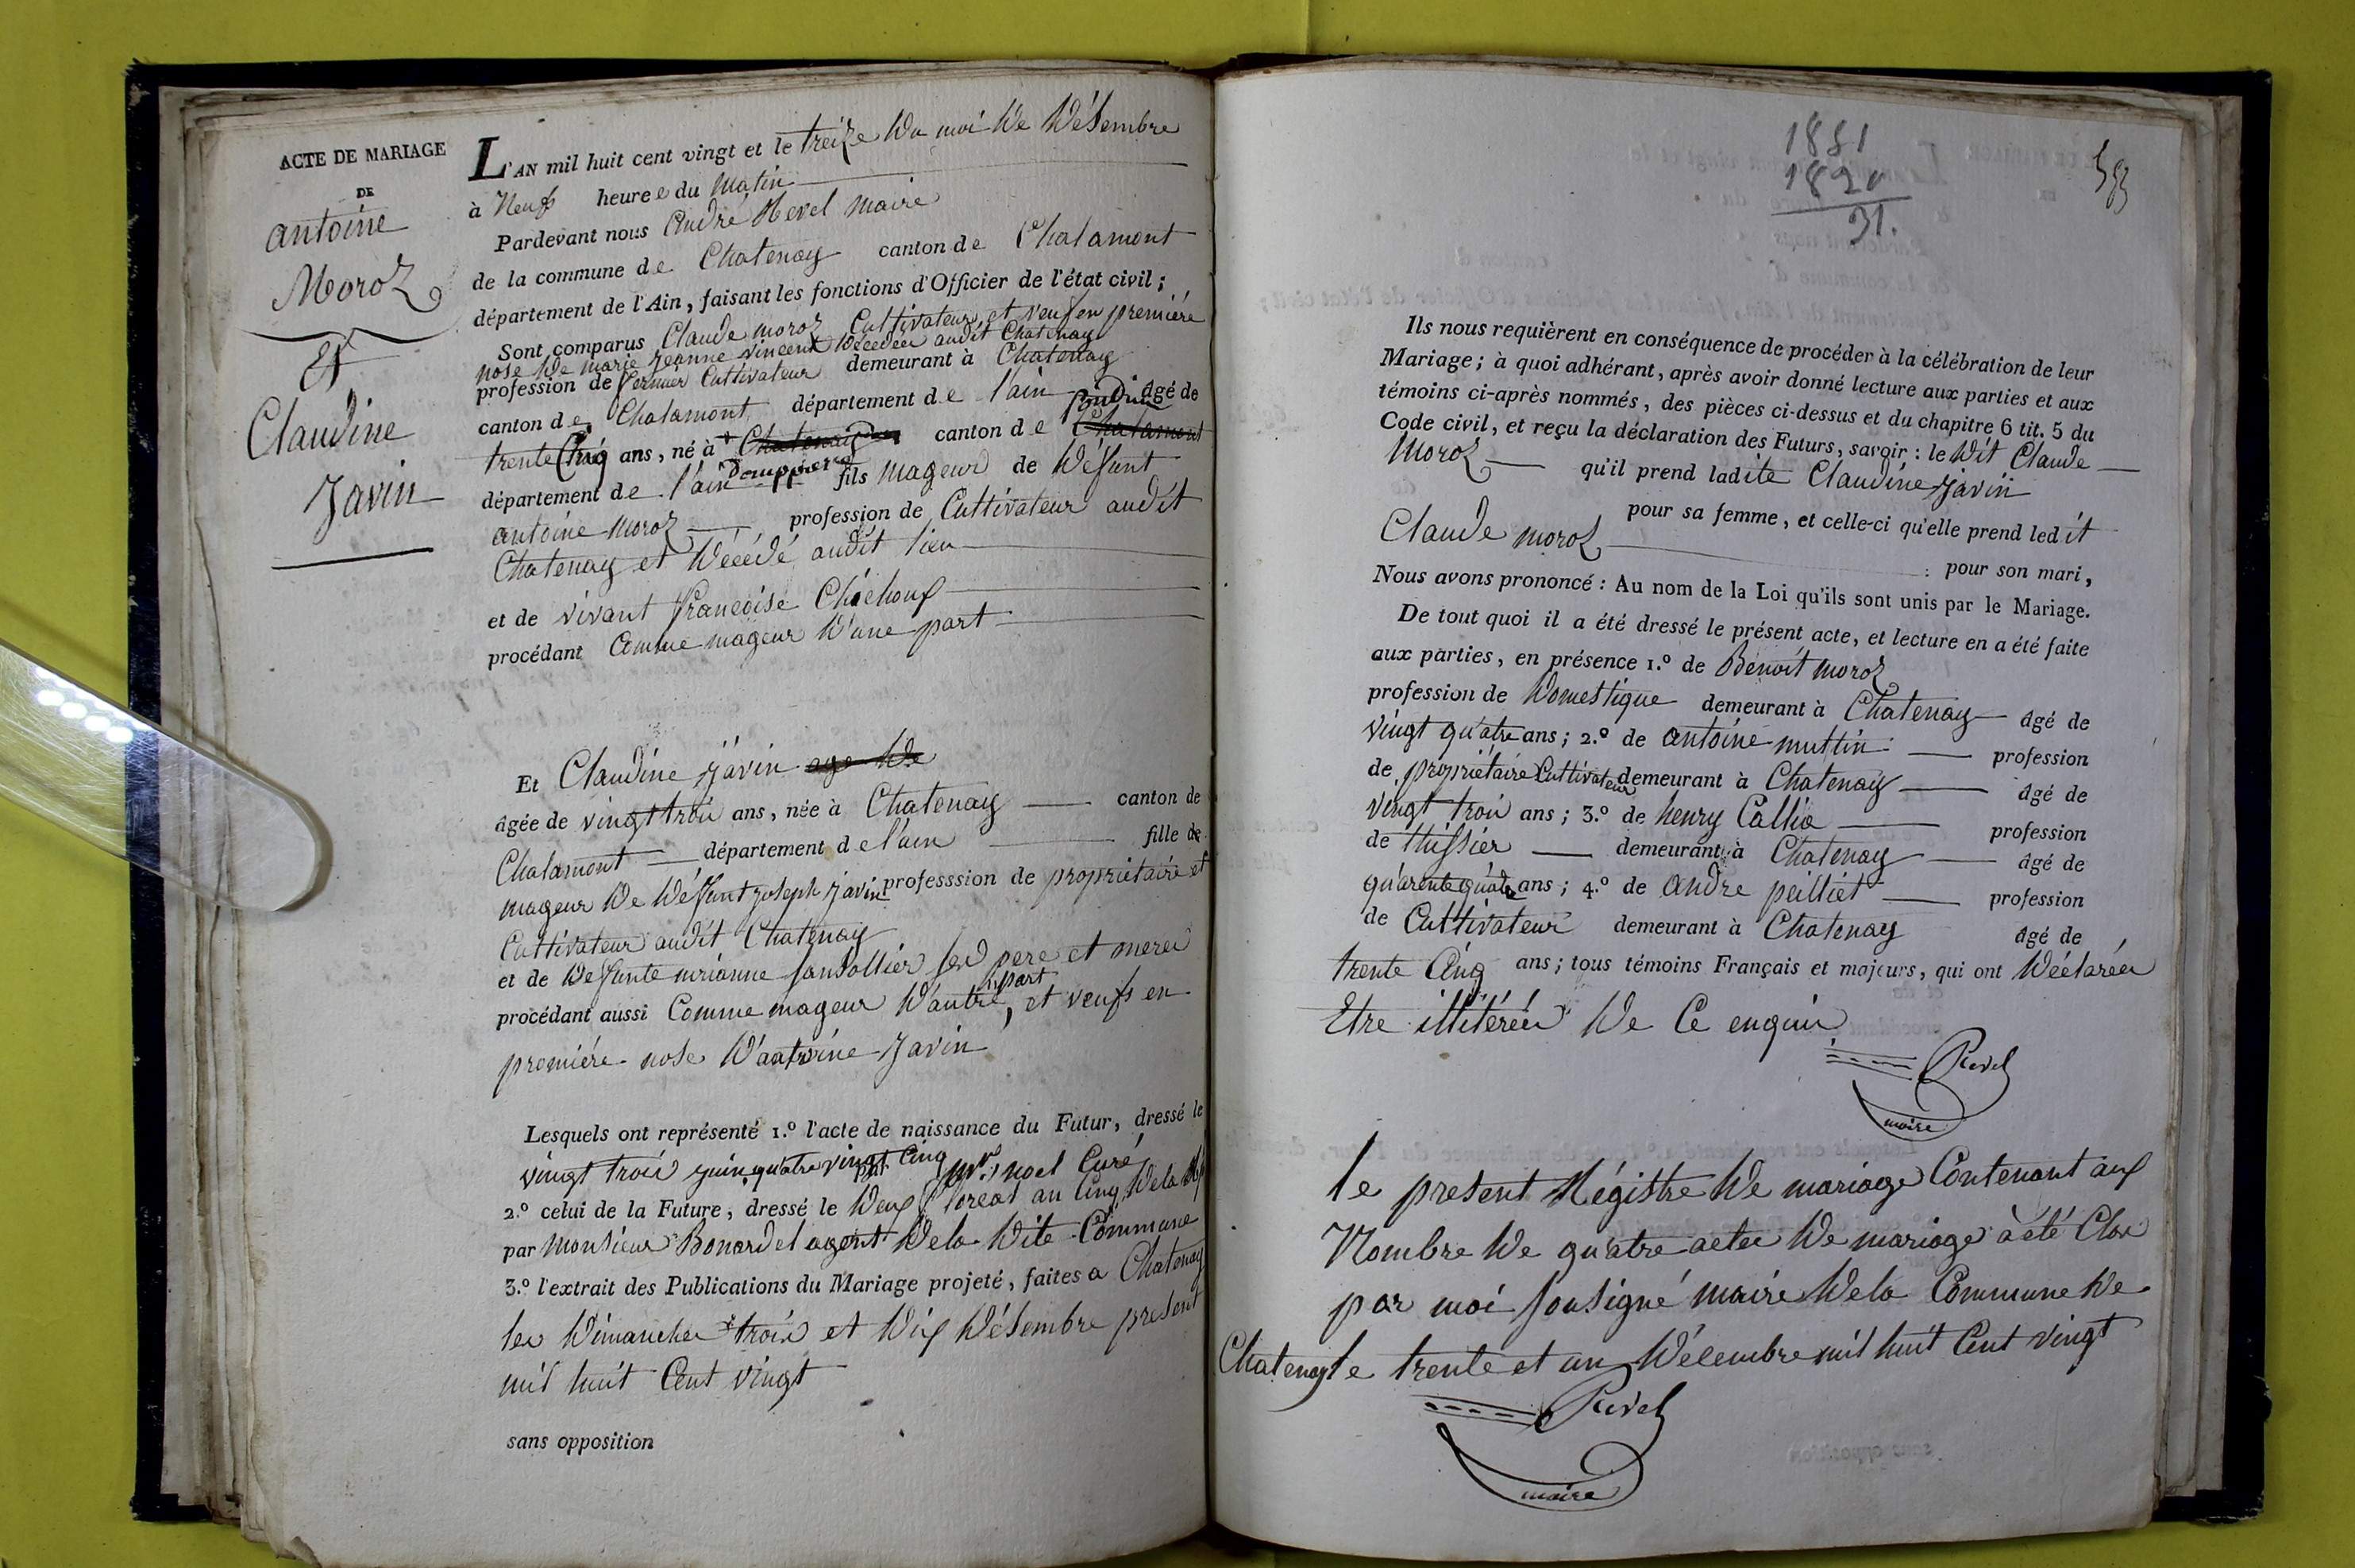 ACTE DE MARIAGE
DE
antoine
Moroz
Et
Claudine
Javin
L'AN mil huit cent vingt et le treize du moi de désembre
à Neuf heure e du matin
Pardevant nous André Revel maire
de la commune de Chatenay canton de Chalamont
département de l'Ain, faisant les fonctions d'Officier de l'état civil;
Sont comparus Claude moroz Cultivateur et veuf en première
nose de marie jeanne vincent décédée audit Chatenay
profession de fermier Cultivateur demeurant à Chatenay
canton de Chalamont département de l'ain âgé de
trente Cinq ans, né à + Chatenay canton de Chalamont
département de l'ain dompierre fils mageur de défunt
antoine moroz profession de Cultivateur audit
Chatenay et décédé audit lieu
et de vivant francoise Chichoux
procédant Comme mageur d'une part
Et Claudine javin age de
âgée de vingt troii ans, née à Chatenay canton de
Chalamont département de l'ain fille de
mageur de défunt joseph javin professsion de propriétaire et
Cultivateur audit Chatenay
et de defunte mrianne sandollier ses pere et merei
procédant aussi Comme mageur d'autre part, et veufs en
premiére nose d'antoine Javin
Lesquels ont représenté 1.º l'acte de naissance du Futur, dressé le
vingt troii juin quatre vingt Cinq par mr. noel Curé
2.º celui de la Future, dressé le deux floreal an Cinq de la
par monsieur Bonardel agent de la dite Commune
3.º l'extrait des Publications du Mariage projeté, faites a Chatenay
les dimanches troix et dix désembre présent
mil huit Cent vingt
sans opposition
1881
1820
31.
Ils nous requièrent en conséquence de procéder à la célébration de leur
Mariage; à quoi adhérant, après avoir donné lecture aux parties et aux
témoins ci-après nommés, des pièces ci-dessus et du chapitre 6 tit. 5 du
Code civil, et reçu la déclaration des Futurs, savoir: le dit Claude
Moroz qu'il prend ladite Claudine javin
pour sa femme, et celle-ci qu'elle prend ledit
Claude moroz : pour son mari,
Nous avons prononcé: Au nom de la Loi qu'ils sont unis par le Mariage.
De tout quoi il a été dressé le présent acte, et lecture en a été faite
aux parties, en présence 1.º de Benoit moroz
profession de domestique demeurant à Chatenay âgé de
vingt quatre ans; 2.º de antoine muttin profession
de propriétaire Cultivateur demeurant à Chatenay âgé de
vingt troii ans; 3.º de henry Callia profession
de thissier demeurant à Chatenay âgé de
quarente quatre ans; 4.º de andre peilliet profession
de Cultivateur demeurant à Chatenay âgé de
trente Cinq ans; tous témoins Français et majeurs, qui ont déclarée
Etre illitérée de Ce enquis
Revel
maire
le present Régistre de mariage Contenant aux
Nombre de quatre actes de mariage à été Clos
par moi sousigné maire de la Commune de
Chatenay le trente et un décembre mil huit Cent vingt
Revel
maire